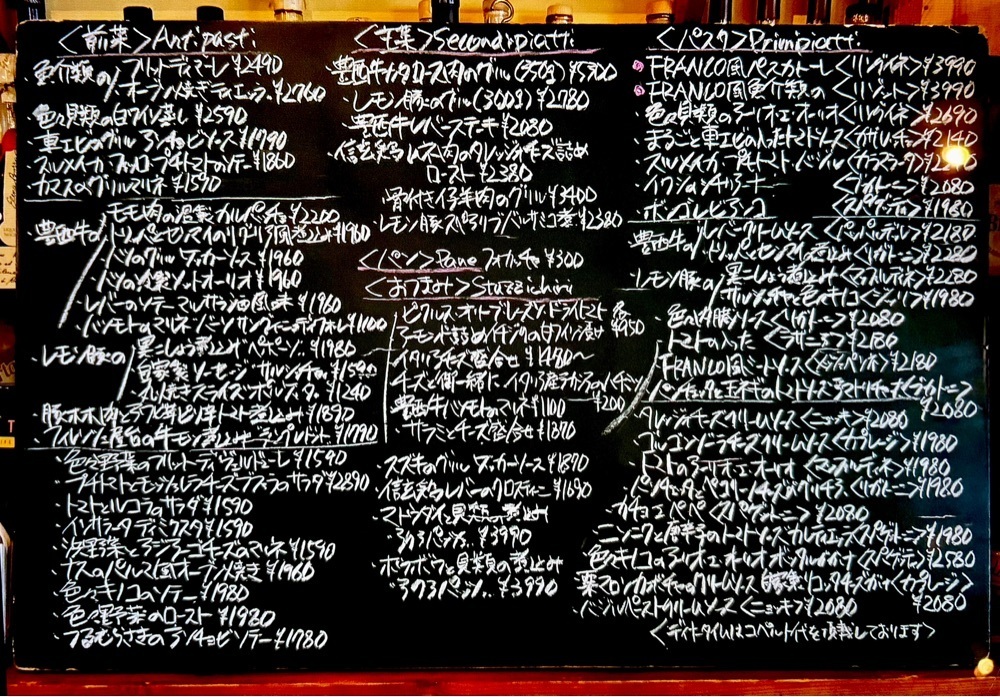 <前菜>Antipasti
魚介類の/フリットディマーレ ¥2490
オーブン焼きティエッラ ¥2760
色々貝類の白ワイン蒸し ¥2590
・車エビのグリル アンチョビソース ¥1790
・スルメイカ フルーツトマトのソテー ¥1860
・カマスのグリルマリネ ¥1590
豊西牛の/モモ肉の温製カルパッチョ ¥2200
・トリッパとセンマイのリグリア風煮込み ¥1960
・ハツのグリル ヴィンコットソース ¥1960
・ハツの冷製 ソットオーリオ ¥1960
・レバーのソテー マルサラ酒風味 ¥1960
・ハツモトのマリネ ¥1100
・レモン豚の/黒こしょう煮込み ペポーゾ ¥1980
自家製ソーセージ サルシッチャ ¥1590
¥1240
・豚ホホ肉と トマト煮込み ¥1890
¥1790
・色々野菜のフリットディヴェルドゥーレ ¥1590
・フルーツトマトとモッツァレラチーズ ブッラータのサラダ ¥2890
・トマトとルコラのサラダ ¥1590
・インサラータ ディミスタ ¥1590
・焼野菜とチーズのマリネ ¥1590
・ナスのパルマ風オーブン焼き ¥1960
・色々キノコのソテー ¥1980
・色々野菜のロースト ¥1980
・つるむらさきのアンチョビソテー ¥1780
<主菜>Secondipiatti
豊西牛カタロース肉のグリル(350g) ¥5500
・レモン豚のグリル(300g) ¥2780
・豊西牛レバーステーキ ¥2080
・信玄鶏ムネ肉のタレッジョチーズ詰め
ロースト ¥2380
・骨付き仔羊肉のグリル ¥3400
・レモン豚スペアリブ バルサミコ煮 ¥2380
<パン>Pane フォカッチャ ¥300
<おつまみ>Stuzzichini
・ピクルス・オリーブ・ドライトマト 各¥950
・アーモンドまるめイチジクの甘ワイン漬け
・イタリアチーズ盛合せ ¥1480〜
・チーズと御一緒に イタリア産アカシアのハチミツ ¥200
・豊西牛ハツモトのマリネ ¥1100
・サラミとチーズ盛合せ ¥1370
・スズキのグリル ヴィンコットソース ¥1870
・信玄鶏レバーのクロスティーニ ¥1690
・マトウダイと貝類の煮込み
アクアパッツァ ¥3990
・ホウボウと貝類の煮込み
アクアパッツァ ¥3990
<パスタ>Primipiatti
・FRANCO風ペスカトーレ<リングイネ>¥3990
・FRANCO風魚介類の<リゾット>¥3990
・色々貝類のアーリオエオーリオ<リングイネ>¥2690
・まるごと車エビの入ったトマトソース<カザレッチェ>¥2140
・スルメイカ フルーツトマト バジル<カラマラータ>
・イワシのシチリアーナ<リガトーニ>¥2080
・ボンゴレビアンコ<スパゲティ>¥1980
豊西牛の/レバークリームソース<パッパルデッレ>¥2180
・トリッパとセンマイ煮込み<リガトーニ>¥2280
・レモン豚の/黒こしょう煮込み<マファルディーネ>¥2280
サルシッチャと色々キノコ<ジェメッリ>¥1980
・色々内臓ソース<リガトーニ>¥2080
・トマトの入った<ラザニア>¥2180
・FRANCO風ミートソース<ラザニエッテ>¥2180
・パンチェッタと玉ネギのトマトソース アマトリチャーナ<ブカティーニ>
¥2080
・タレッジョチーズクリームソース<ニョッキ>¥2080
・ゴルゴンゾーラチーズクリームソース<カザレッチェ>¥1980
・トマトのアーリオエオーリオ<マファルディーネ>¥1980
・パンチェッタとペコリーノチーズ グリーチャ<リガトーニ>¥1980
・カチョエペペ<スパゲットーニ>¥2080
・ニンニクと唐辛子のトマトソース スカルパリエッロ<スパゲットーニ>¥1980
色々キノコのアーリオエオーリオ ボッタルガがけ<スパゲティ>¥2580
・栗マロンカボチャのクリームソース 自家製リコッタチーズがけ<カザレッチェ>
¥2080
・バジルペーストクリームソース<ニョッキ>¥2080
<ディナータイムはコペルト代を頂戴しております>